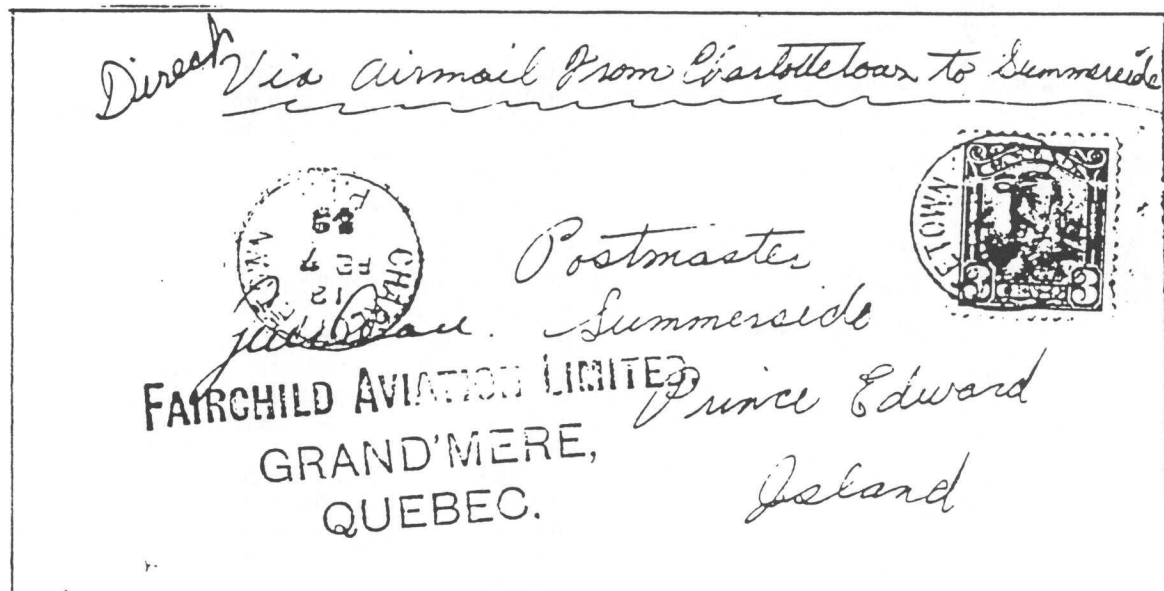 Direct Via airmail From Charlottetown to Summerside
CHAR
12
FE 7
ETOWN
3 CENTS 3
Postmaster
Summerside
Prince Edward
Island
FAIRCHILD AVIATION LIMITED,
GRAND'MERE,
QUEBEC.